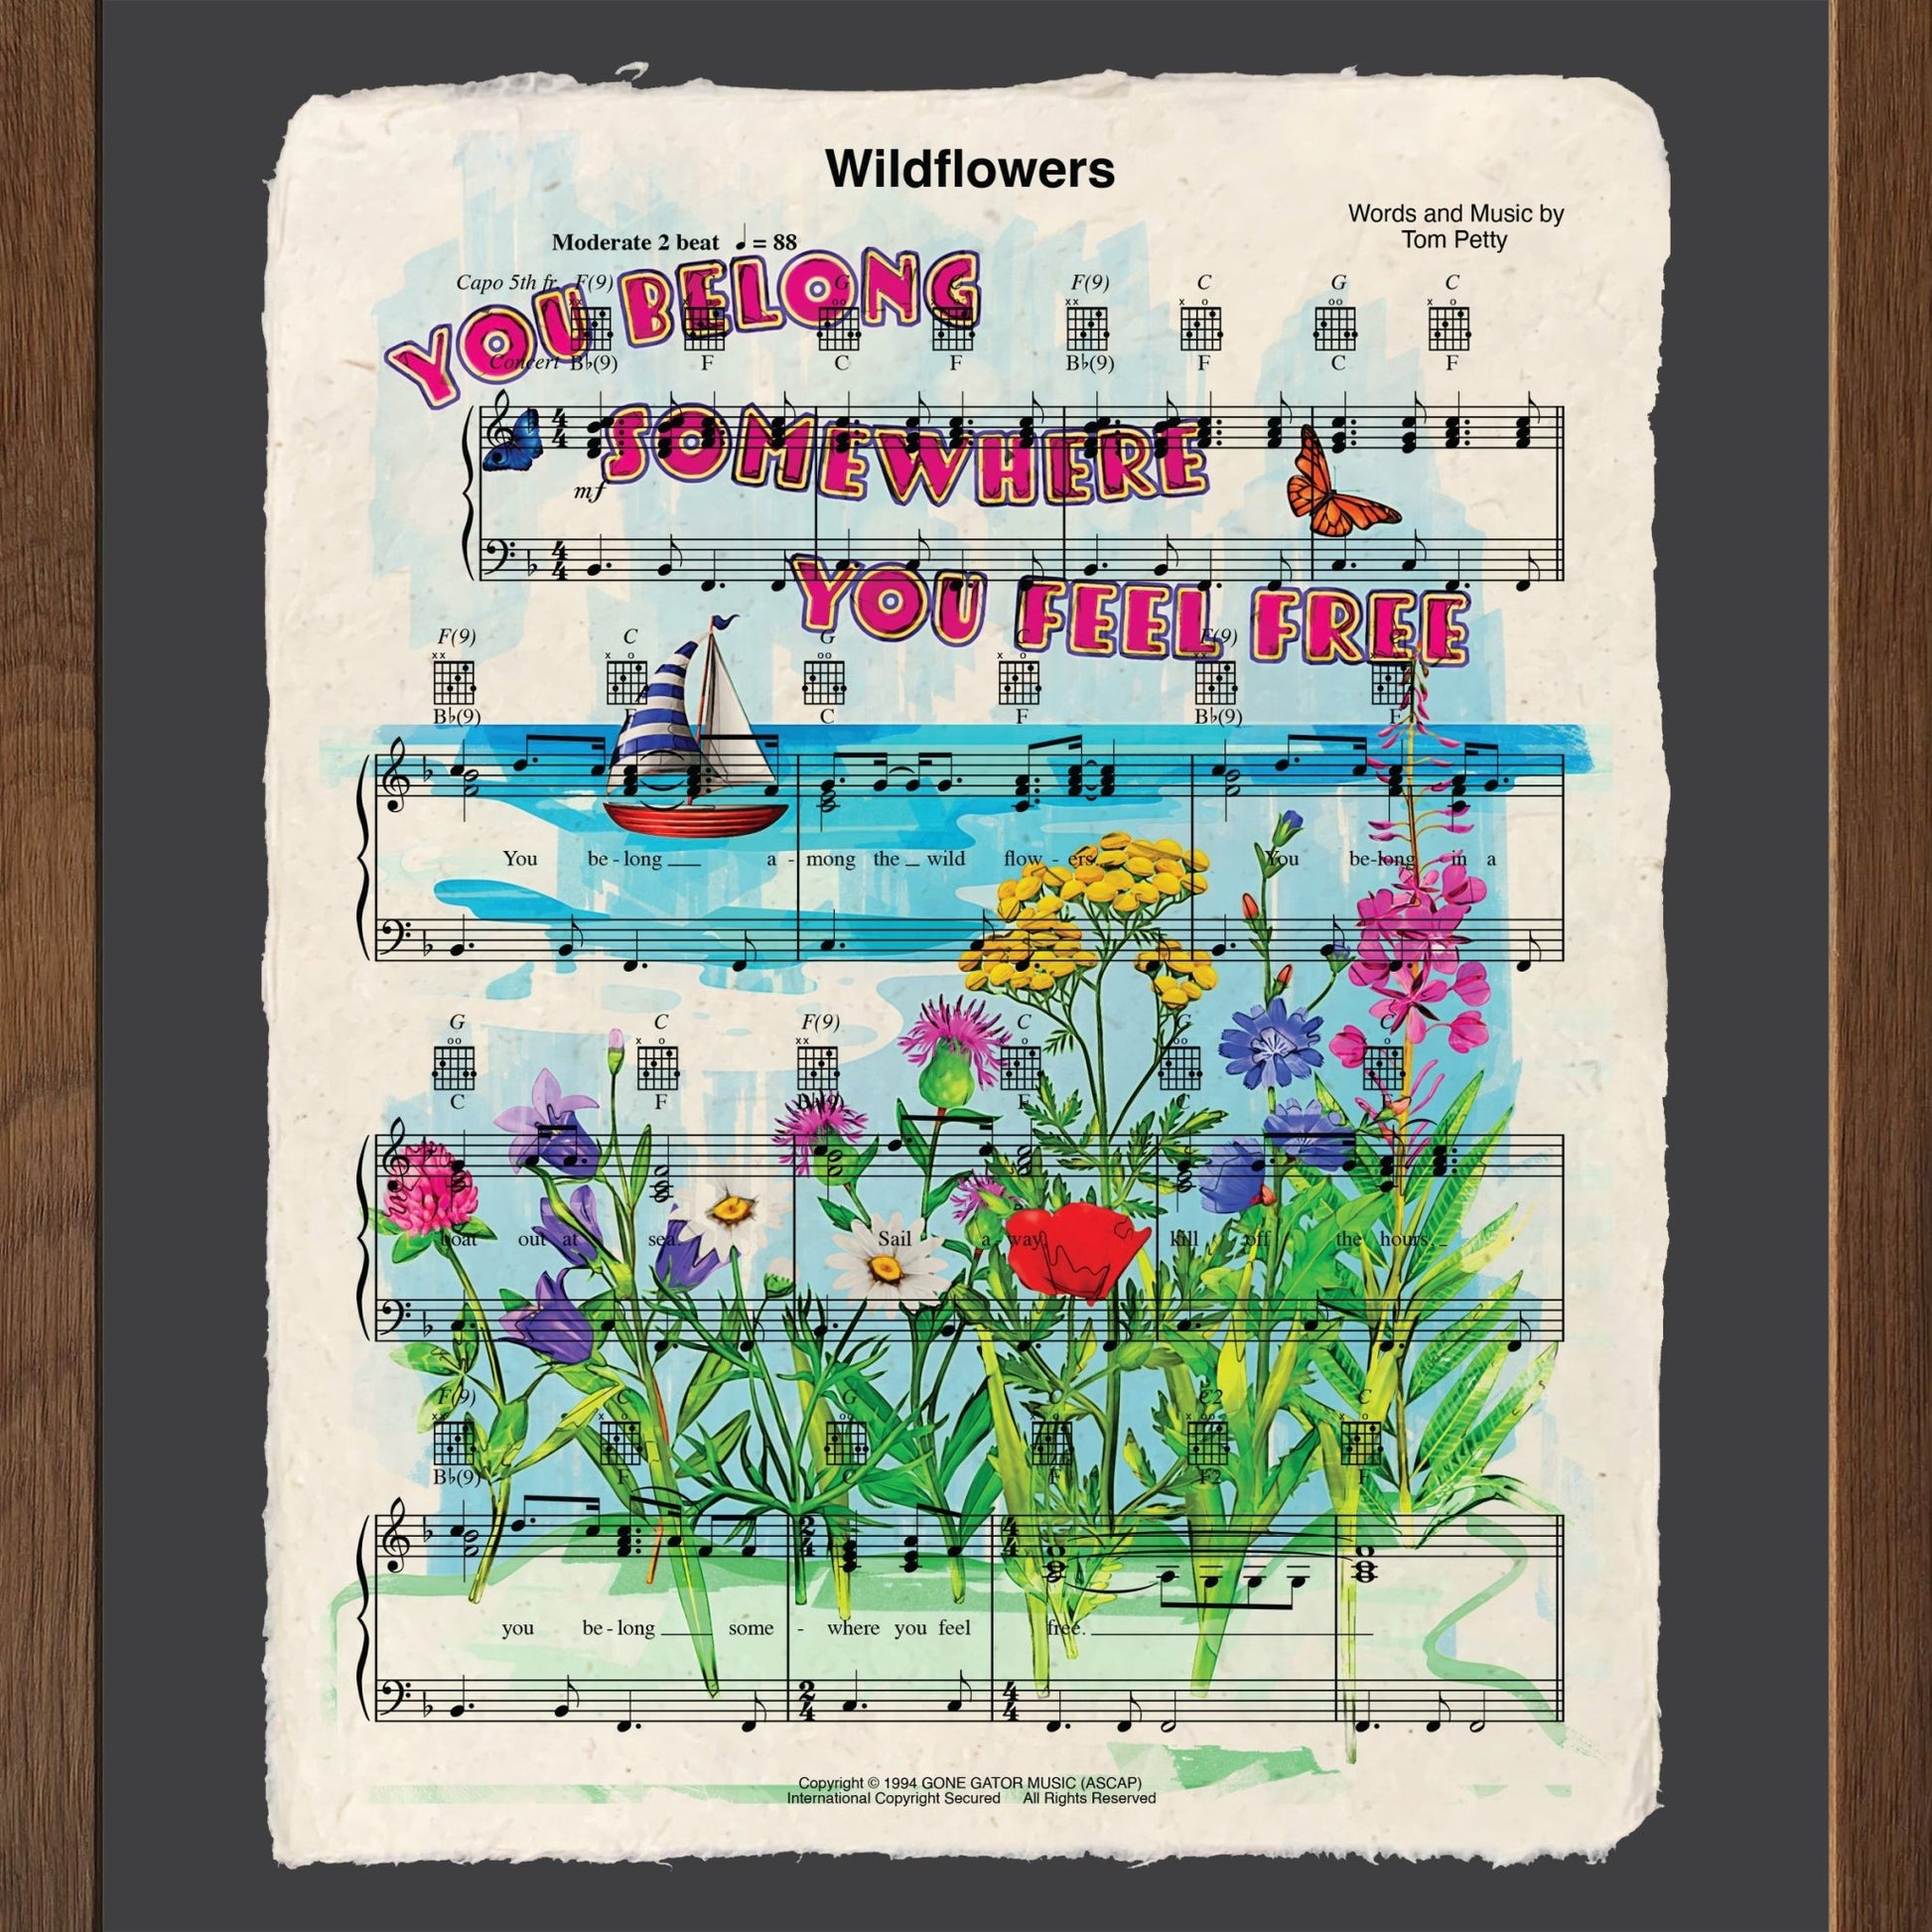 Wildflowers
Words and Music by
Tom Petty
Moderate 2 beat ♩ = 88
YOU BELONG
Capo 5th fr. F(9) C G C F(9) C G C
Concert B♭(9) F C F B♭(9) F C F
SOMEWHERE
mf
YOU FEEL FREE
F(9) C G C F(9) C
B♭(9) F C F B♭(9) F
You be - long a - mong the wild flow - ers. You be - long in a
G C F(9) C G C
C F B♭(9) F C F
boat out at sea. Sail a - way, kill off the hours.
F(9) C G C C2 C
B♭(9) F C F F2 F
you be - long some - where you feel free.
Copyright © 1994 GONE GATOR MUSIC (ASCAP)
International Copyright Secured All Rights Reserved